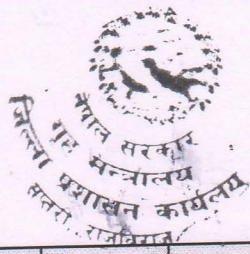 नेपाल सरकार
गृह मन्त्रालय
जिल्ला प्रशासन कार्यालय
सप्तरी राजविराज